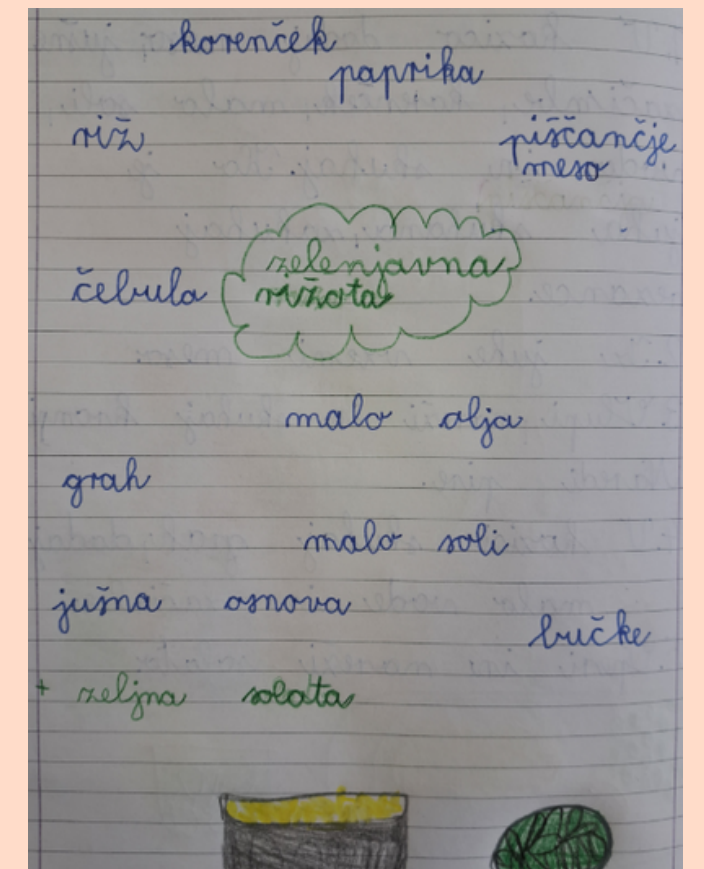 korenček
paprika
riž
piščančje
meso
zelenjavna
rižota
čebula
malo olja
grah
malo soli
jušna osnova
bučke
+ zeljna solata